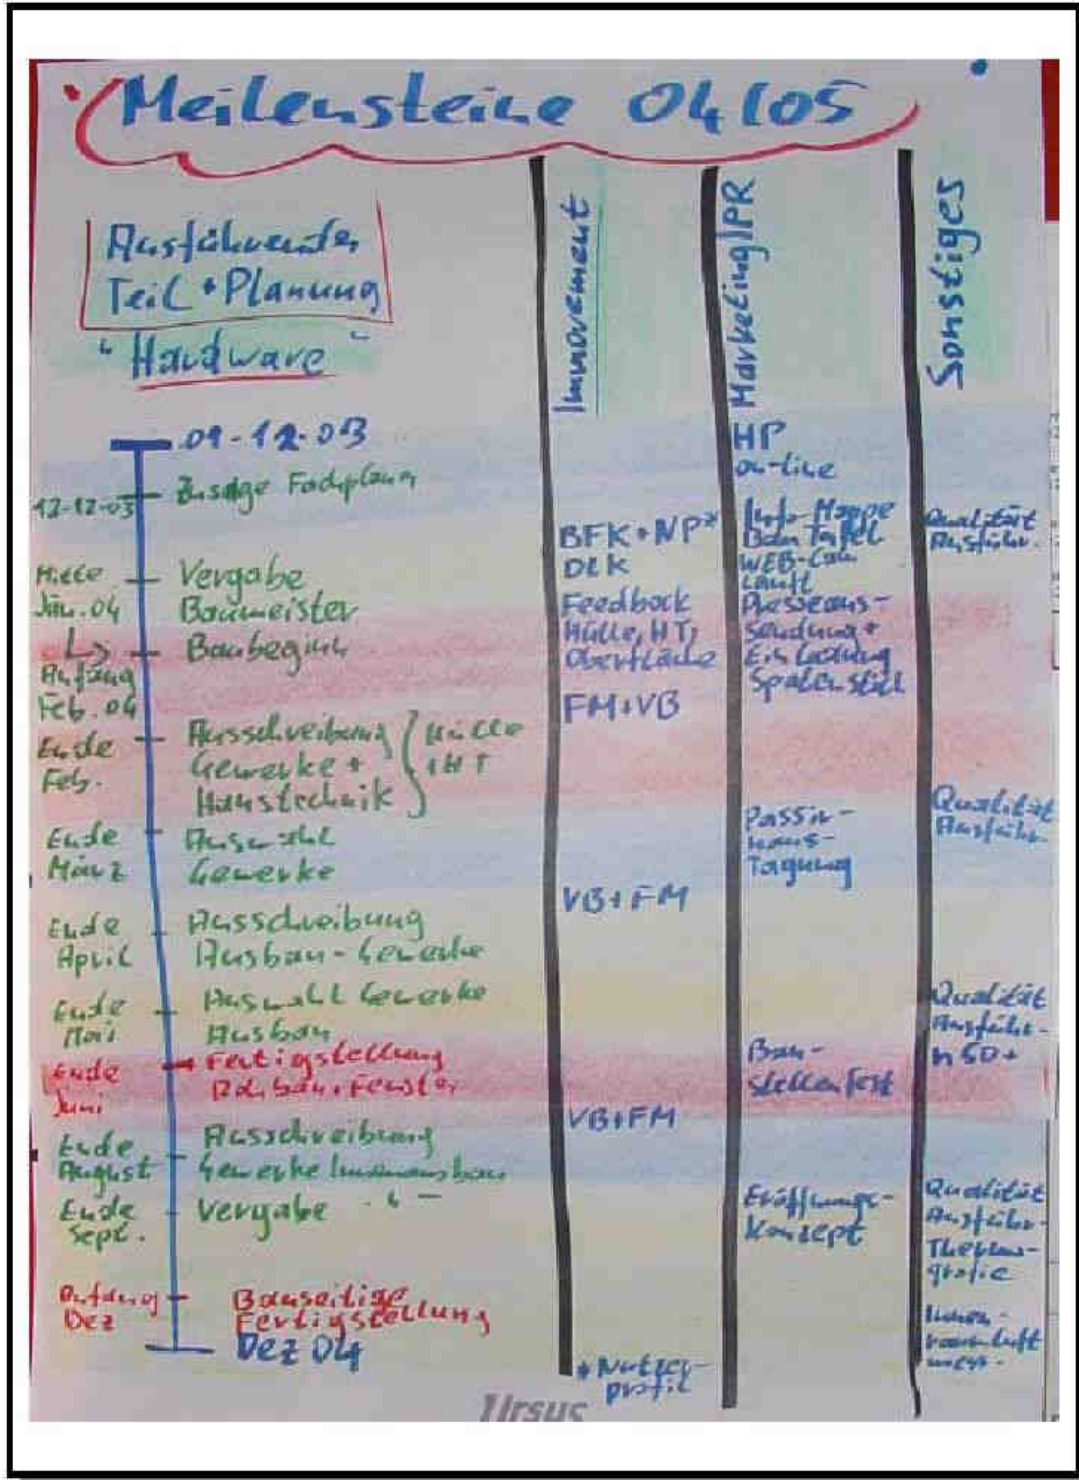 Meilensteine 04/05
Ausführender
Teil + Planung
"Hardware"
01-12-03
12-12-03
Zusage Fachplanung
Mitte
Jän. 04
Vergabe
Baumeister
Anfang
Feb. 04
Baubeginn
Ende
Feb.
Ausschreibung
Gewerke +
Haustechnik
Hülle
+ HT
Ende
März
Auswahl
Gewerke
Ende
April
Ausschreibung
Ausbau-Gewerke
Ende
Mai
Auswahl Gewerke
Ausbau
Ende
Juni
Fertigstellung
Rohbau + Fenster
Ende
August
Ausschreibung
Gewerke Innenausbau
Ende
Sept.
Vergabe - " -
Anfang
Dez
Bauseitige
Fertigstellung
Dez 04
Immovement
BFK + NP*
DLK
Feedback
Hülle, HT,
Oberfläche
FM+VB
VB+FM
VB+FM
*Nutzer-
profil
Marketing/PR
HP
on-line
Info-Mappe
Bau Tafel
WEB-Cam
läuft
Presseaus-
sendung +
Einladung
Spatenstich
Passiv-
haus-
Tagung
Bau-
stellenfest
Eröffnungs-
Konzept
Sonstiges
Qualität
Ausführ.
Qualität
Ausführ.
Qualität
Ausführ.
n50+
Qualität
Ausführ.
Thermo-
grafie
Innen-
raumluft
mess.
Ursus